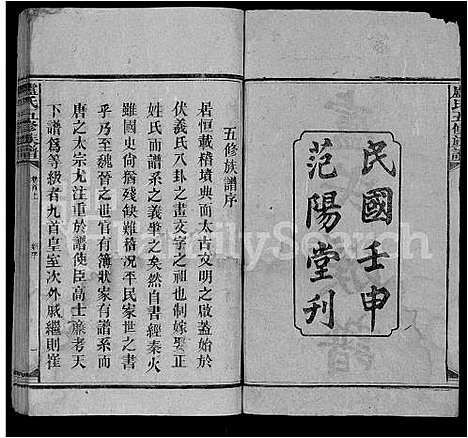 民國壬申
范陽堂刊
盧氏五修族譜
五修族譜序
居恒載稽墳典而太古文明之啟蓋始於
伏羲氏八卦之畫文字之祖也制嫁娶正
姓氏而譜系之義肇矣然自書經秦火
雖國史尚猶殘缺難稽况平民家世之書
乎乃至魏晉之世官有簿狀家有譜系而
唐之太宗尤注重於譜使臣高士廉考天
下譜爲等級者九首皇室次外戚繼則崔
盧氏五修族譜
卷首上
FamilySearch